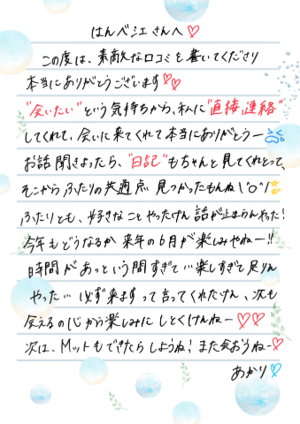 はんべ江さんへ♡
この度は、素敵な口コミを書いてくださり
本当にありがとうございます♡♡
"会いたい"という気持ちから、私に"直接連絡"
してくれて、会いに来てくれて本当にありがとうー
お話聞きよったら、"日記"もちゃんと見てくれとって、
そこからふたりの共通点 見つかったもんね!'o'/
ふたりとも、好きなことやったけん 話が止まらんやった!
今年もどうなるか 来年の6月が楽しみやねー!!
時間があっという間すぎて…楽しすぎて足りん
やった… 必ず来ますって言ってくれたけん、次も
会えるの心から楽しみにしとくけんねー♡♡
次は、Mットもできたらしようね! また会おうねー♡
あかり♡